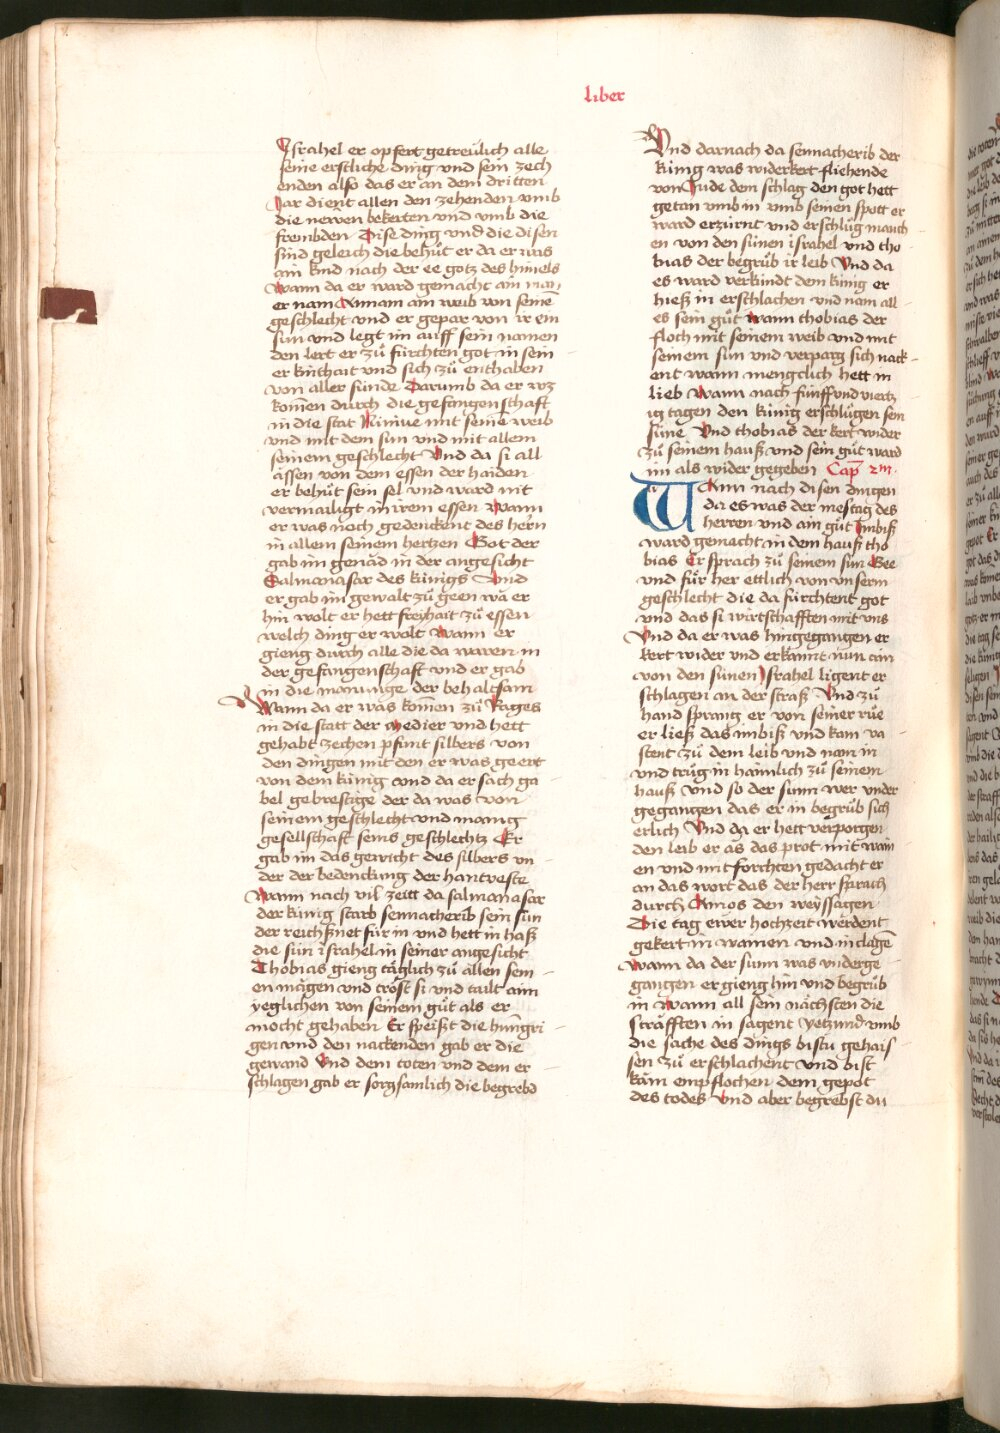 liber
Israhel er opfert getreülich alle
seine erstliche ding vnd sein zech
enden also das er an dem dritten
Jar dient allen den zehenden vmb
die newen bekerten vnd vmb die
frembden Dise ding vnd die disen
sind geleich die behüt er da er was
ain kind nach der ee gotz des himels
Wann da er ward gemacht ain man
er nam Annam ain weib von seine
geschlecht vnd er gepar von ir ein
sun vnd legt im auff sein namen
den lert er zů fürchten got in sein
er kinthait vnd sich zů enthaben
von aller sünde Darumb da er wz
komen durch die gefangenschaft
in die stat Niniue mit seine weib
vnd mit dem sun vnd mit allem
seinem geschlecht Vnd da si all
assen von dem essen der haiden
er behüt sein sel vnd ward nit
vermailigt in irem essen Wann
er was noch gedenckent des hern
in allem seinem hertzen Got der
gab im genad in der angesicht
Salmanasar des künigs Vnd
er gab im gewalt zů geen wa er
hin wolt er hett freyhait zů essen
welch ding er wolt Wann er
gieng durch alle die da waren in
der gefangenschaft vnd er gab
in die manunge der behaltsam
Wann da er was komen zů Rages
in die statt der Medier vnd hett
gehabt zechen pfunt silbers von
den dingen mit den er was geert
von dem künig vnd da er sach ga
bel gebrestige der da was von
seinem geschlecht vnd manig
gesellschaft seins geschlechtz Er
gab im das gewicht des silbers vn
der der bedenckung der hantueste
Wann nach vil zeitt da salmanasar
der künig starb sennacherib sein sun
der reichßnet für in vnd hett in haß
die sün israhel in seiner angesicht
Thobias gieng täglich zů allen sein
en magen vnd tröst si vnd tailt aim
yeglichen von seinem gůt als er
mocht gehaben Er speißt die hungri
gen vnd den nackenden gab er die
gewand Vnd dem toten vnd dem er
schlagen gab er sorgsamlich die begrebd
Vnd darnach da sennacherib der
künig was widerkert fliehende
von Jude dem schlag den got hett
getan vmb in vmb seinen spott er
ward erzürnt vnd erschlůg manch
en von den sünen israhel vnd tho
bias der begrůb ir leib Vnd da
es ward verkündt dem künig er
hieß in erschlachen vnd nam all
es sein gůt Wann thobias der
floch mit seinem weib vnd mit
seinem sun vnd verparg sich nack
ent wann mengclich hett in
lieb Wann nach fünff vnd viertz
ig tagen den künig erschlůgen sein
süne Vnd thobias der kert wider
zů seinem hauß vnd sein gůt ward
im als wider gegeben Cap 2m.
WAnn nach disen dingen
da es was der mestag des
herren vnd ain gůt Imbiß
ward gemacht in dem hauß tho
bias Er sprach zů seinem sun Gee
vnd für her ettlich von vnserm
geschlecht die da fürchtent got
vnd das si wirtschafften mit vns
Vnd da er was hingegangen er
kert wider vnd erkannt nun ain
von den sünen Israhel ligent er
schlagen an der straß Vnd zů
hand sprang er von seiner růe
er ließ das imbiß vnd kam va
stent zů dem leib vnd nam in
vnd trůg in haimlich zů seinem
hauß Vnd so der sunn wer vnder
gegangen das er in begrůb sich
erlich Vnd da er hett verporgen
den leib er as das prot mit wain
en vnd mit forchten gedacht er
an das wort das der herr sprach
durch Amos den weyssagen
Die tag ewer hochzeit werdent
gekert in wainen vnd in clagen
Wann da der sunn was vnderge
gangen er gieng hin vnd begrůb
in Wann all sein nächsten die
sträfften in sagent Yetzund vmb
die sache des dings bistu gehais
sen zů erschlachent vnd bist
kam empflochen dem gepot
des todes Vnd aber begrebst du